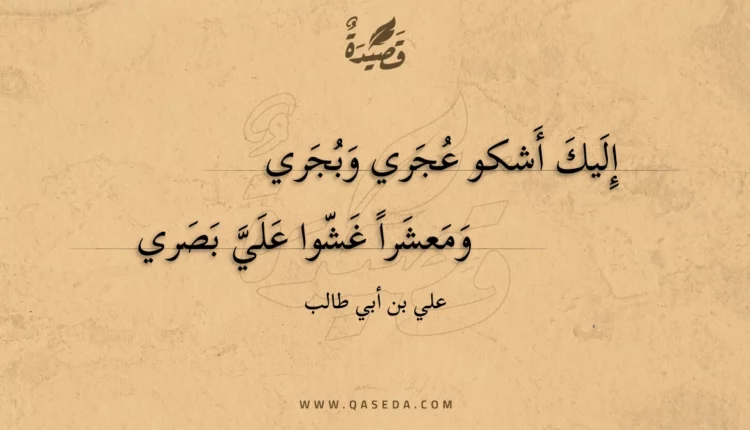 قَصِيدَةٌ
إِلَيكَ أَشكو عُجَري وَبُجَري
وَمَعشَراً غَشّوا عَلَيَّ بَصَري
علي بن أبي طالب
WWW.QASEDA.COM